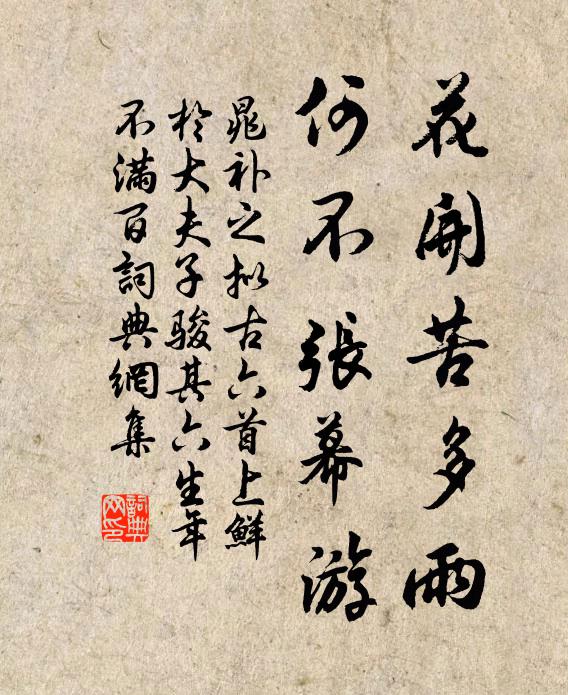 花開苦多雨
何不張幕游
晁补之拟古六首上鮮
於大夫子駿其六生年
不滿百詞典網集
詞典
网印